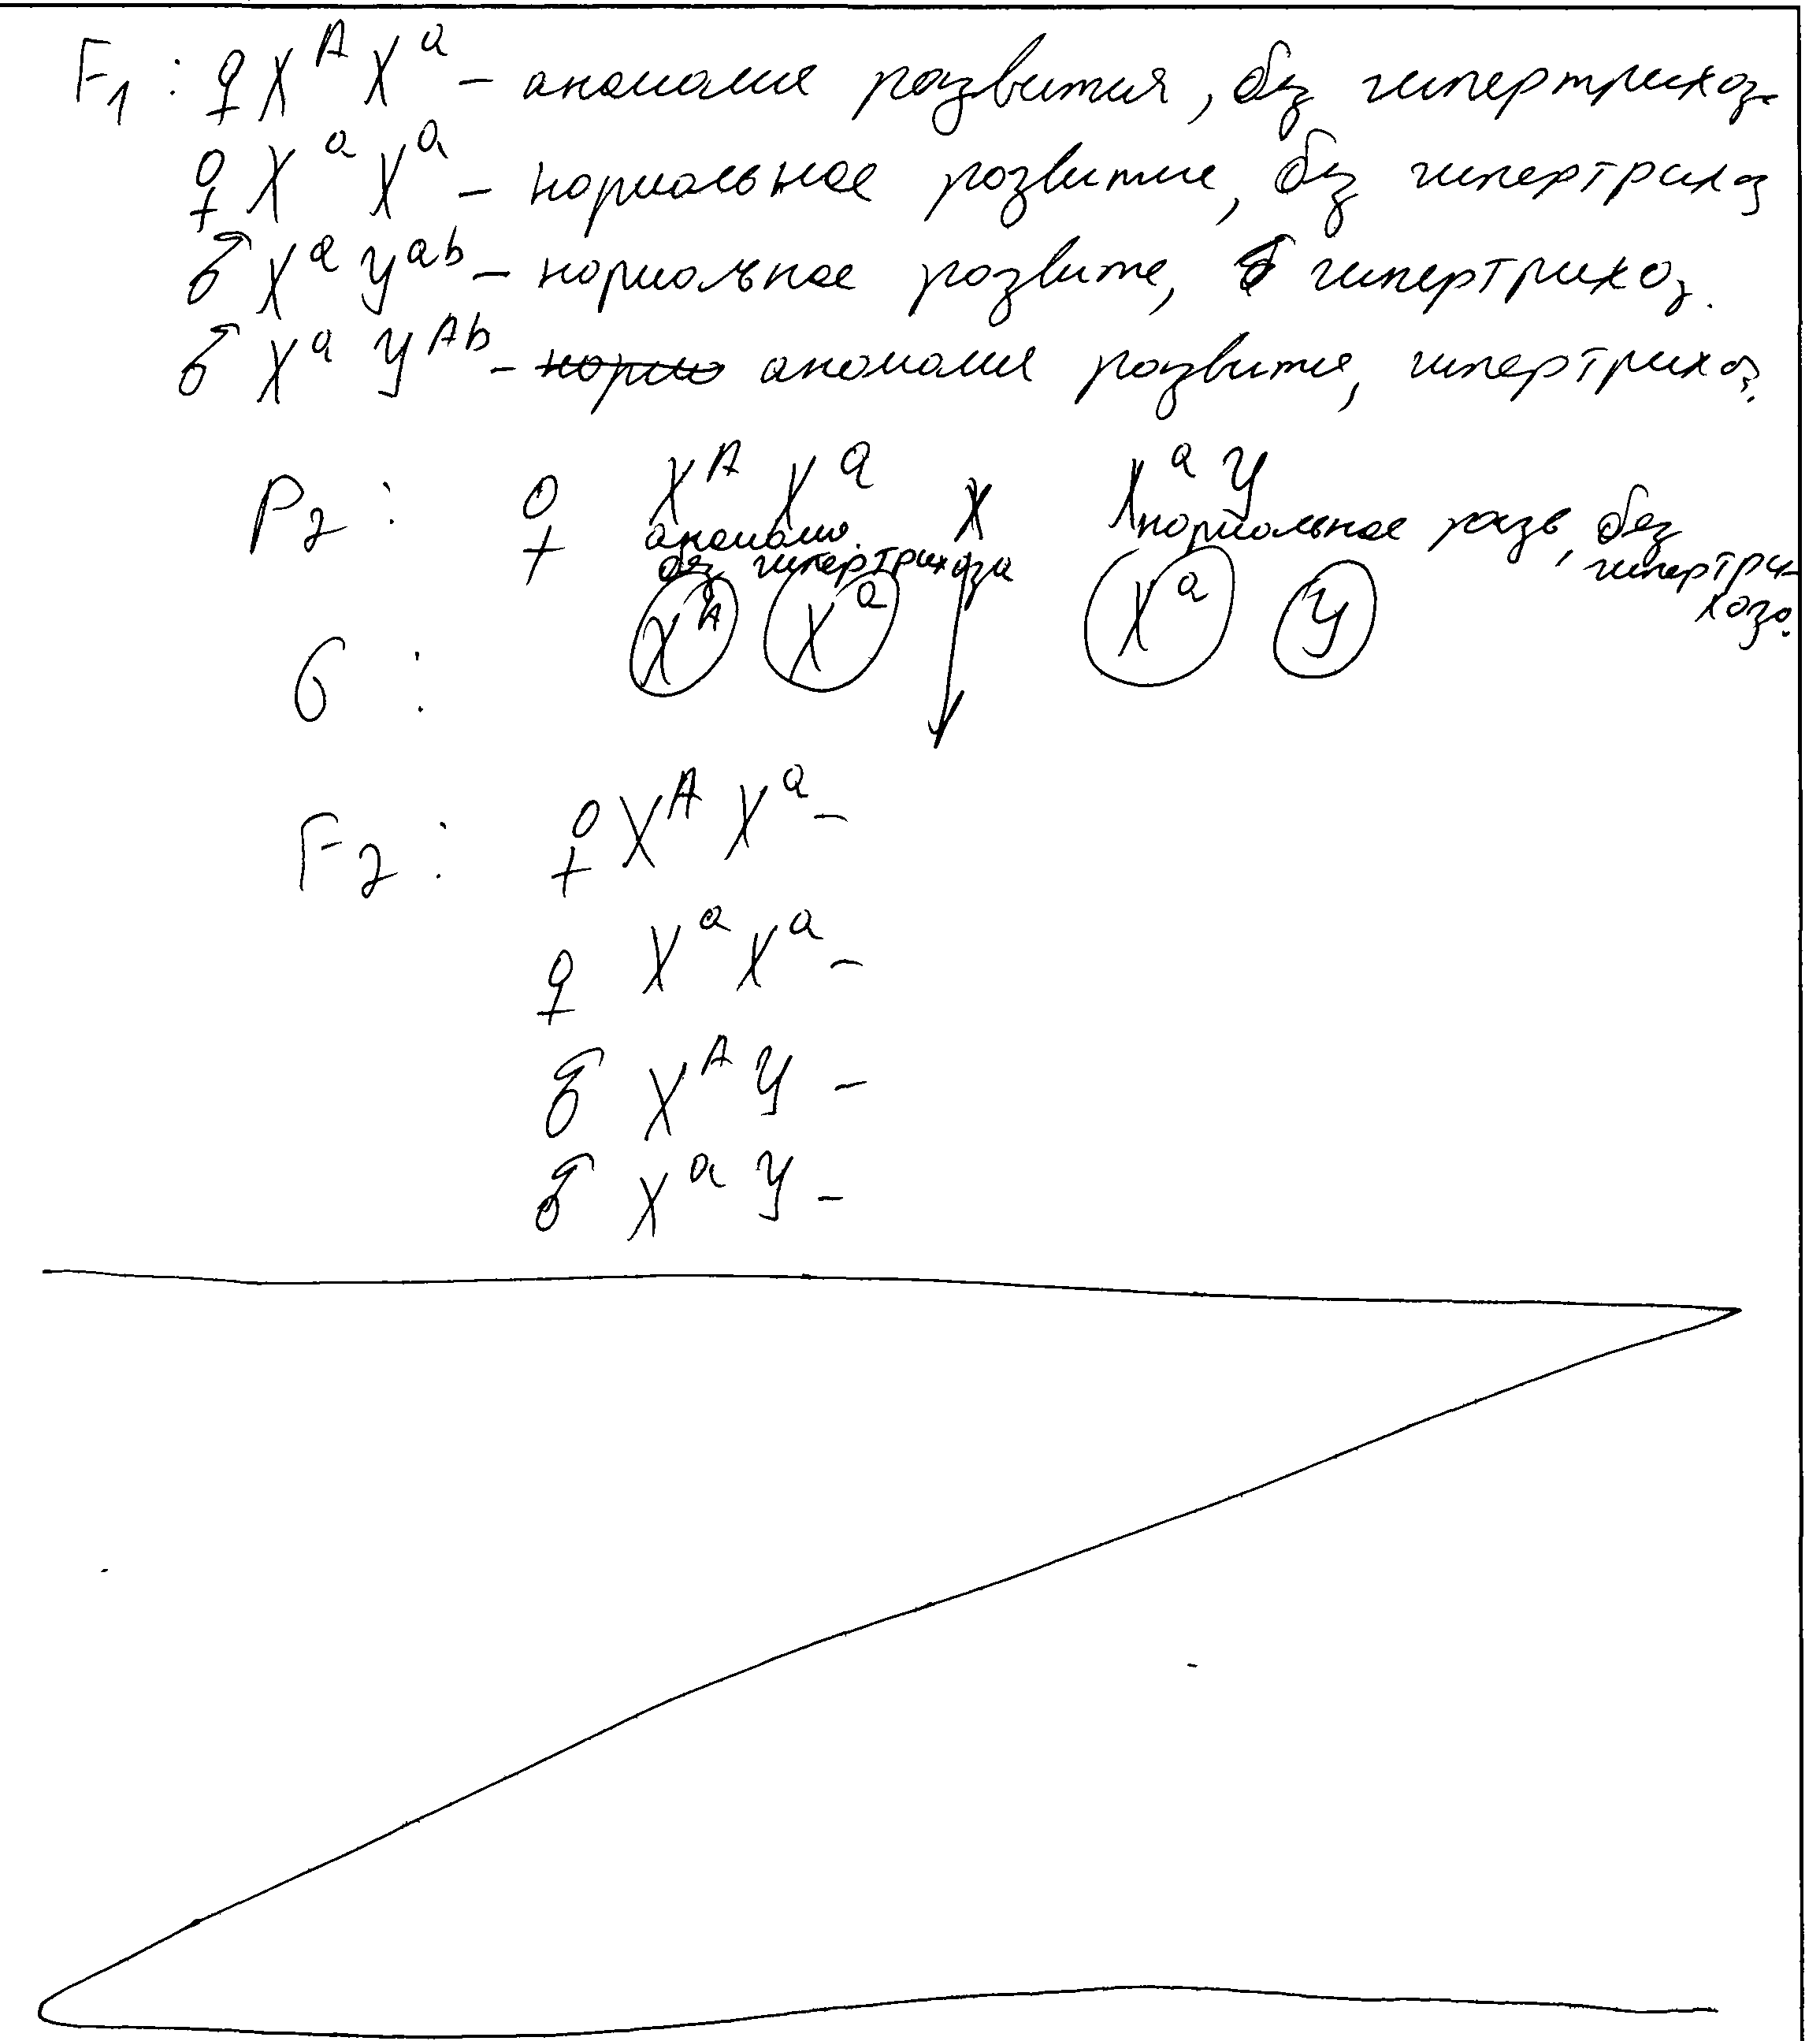 F₁: ♀ X^A X^a – аномалия развития, без гипертрихоз.
♀ X^a X^a – нормальное развитие, без гипертрихоз
♂ X^a Y^ab – нормальное развите, гипертрихоз.
♂ X^a Y^Ab – норма аномалия развития, гипертрихоз.
P₂: ♀ X^A X^a x X^a Y
аномали. без гипертрихоза нормальное разв, без гипертри-
хоза.
G: X^A X^a X^a Y
F₂: ♀ X^A X^a –
♀ X^a X^a –
♂ X^A Y –
♂ X^a Y –